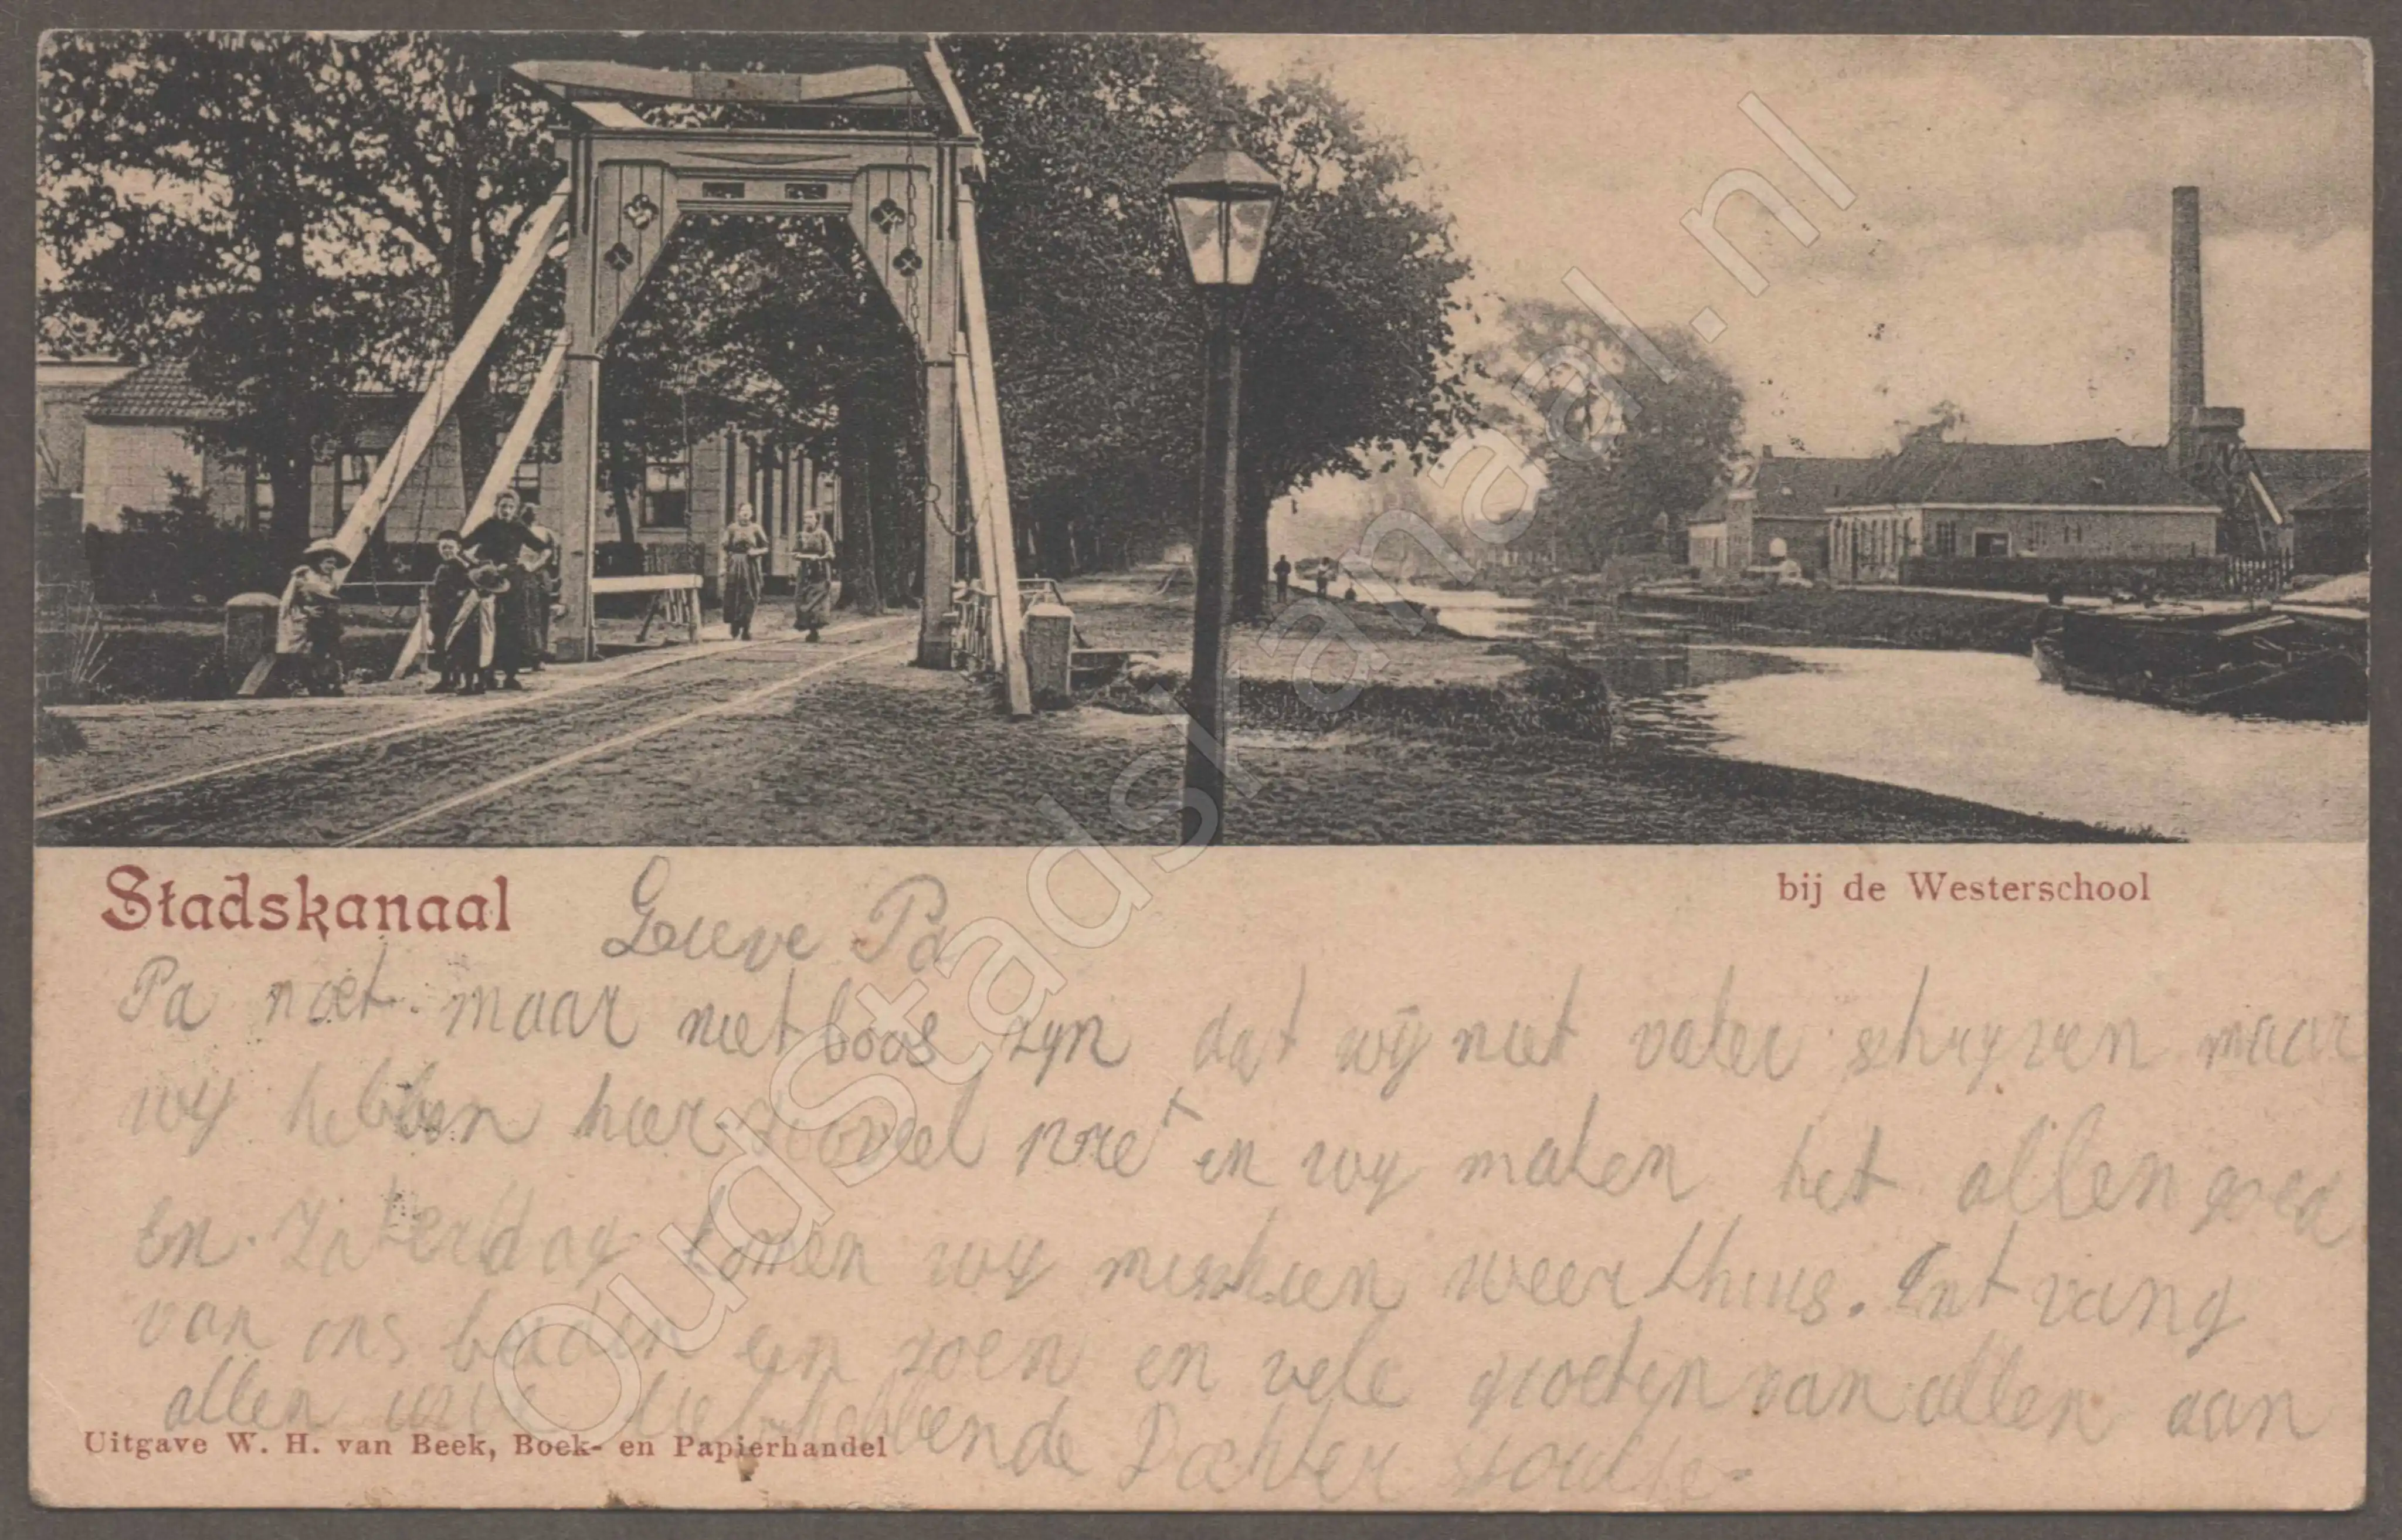 Stadskanaal
bij de Westerschool
Lieve Pa
Pa moet maar niet boos zijn dat wij niet vaker schryven maar
wy hebben hier zooveel pret en wy maken het allen goed
En Zaterdag komen wy misschien weer thuis. Ontvang
van ons beiden een zoen en vele groeten van allen aan
allen uwe liefhebbende Dochter
Uitgave W. H. van Beek, Boek- en Papierhandel
OudStadskanaal.nl